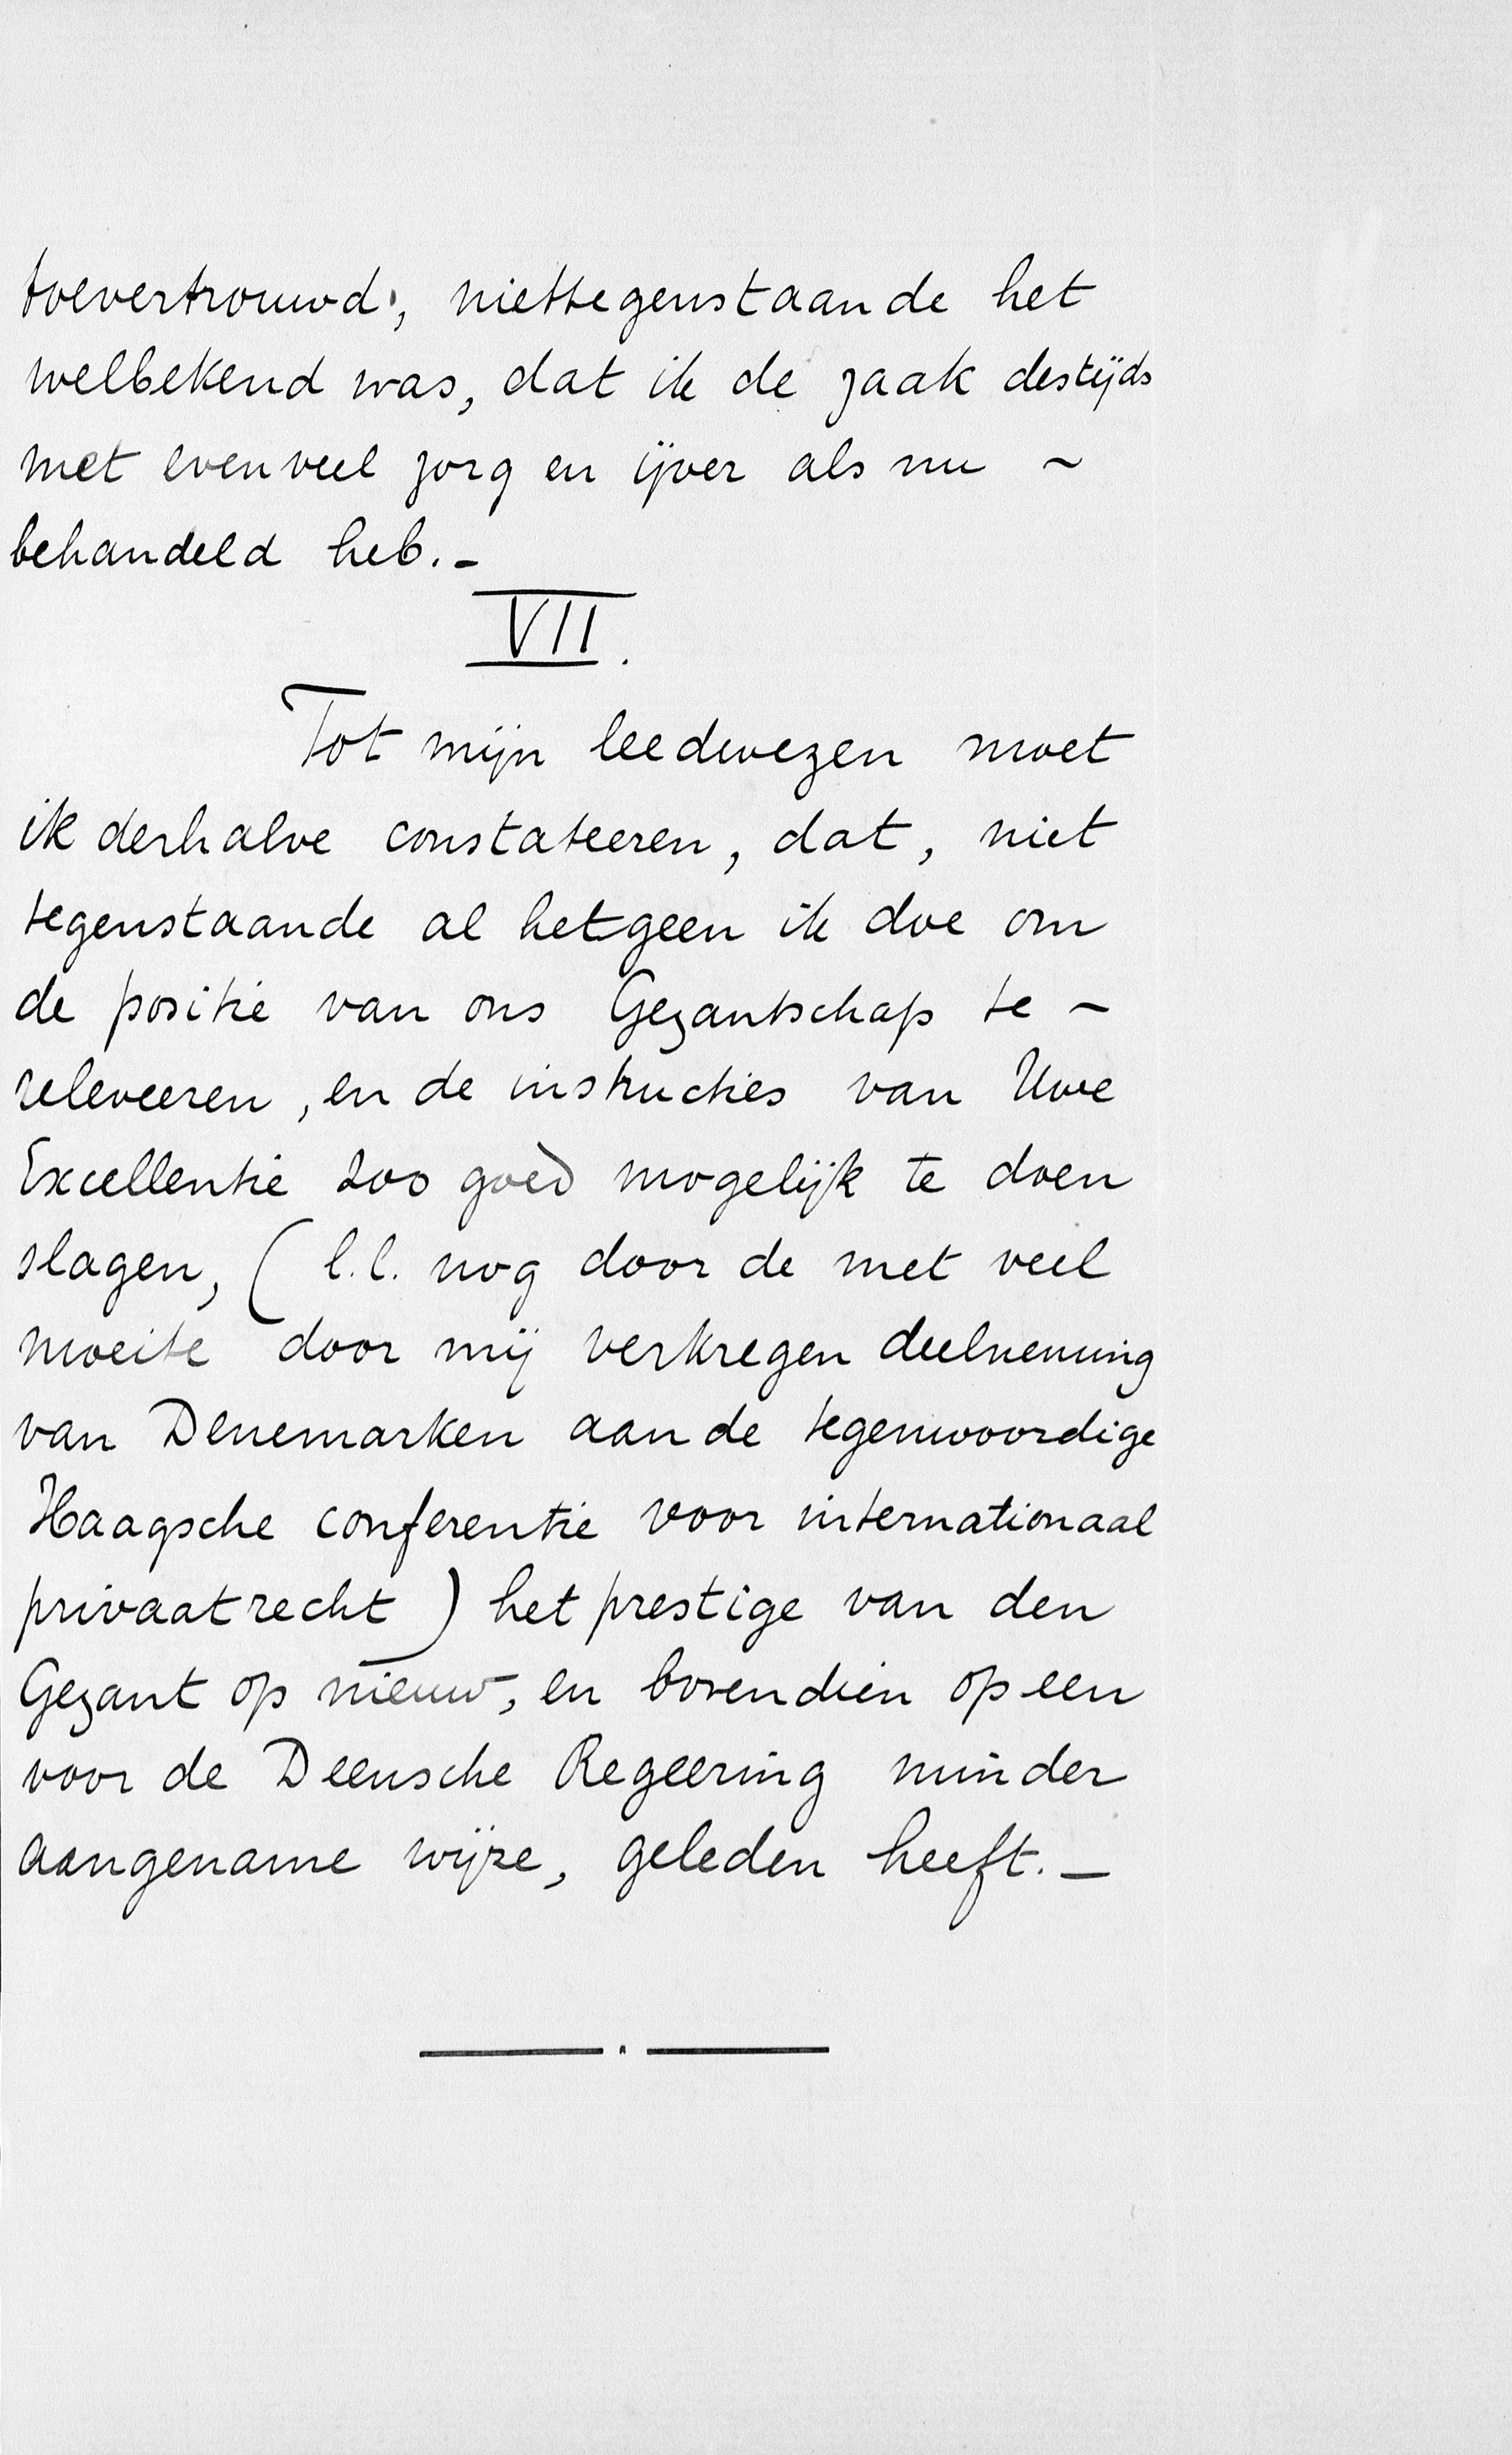 toevertrouwd, niettegenstaande het
welbekend was, dat ik de zaak destijds
met evenveel zorg en ijver als nu ~
behandeld heb.-
VII.
Tot mijn leedwezen moet
ik derhalve constateeren, dat, niet
tegenstaande al hetgeen ik doe om
de positie van ons Gezantschap te -
releveeren, en de instructies van Uwe
Excellentie zoo goed mogelijk te doen
slagen, (l.l. nog door de met veel
moeite door mij verkregen deelneming
van Denemarken aan de tegenwoordige
Haagsche conferentie voor internationaal
privaatrecht) het prestige van den
Gezant op nieuw, en bovendien op een
voor de Deensche Regeering minder
aangename wijze, geleden heeft.-